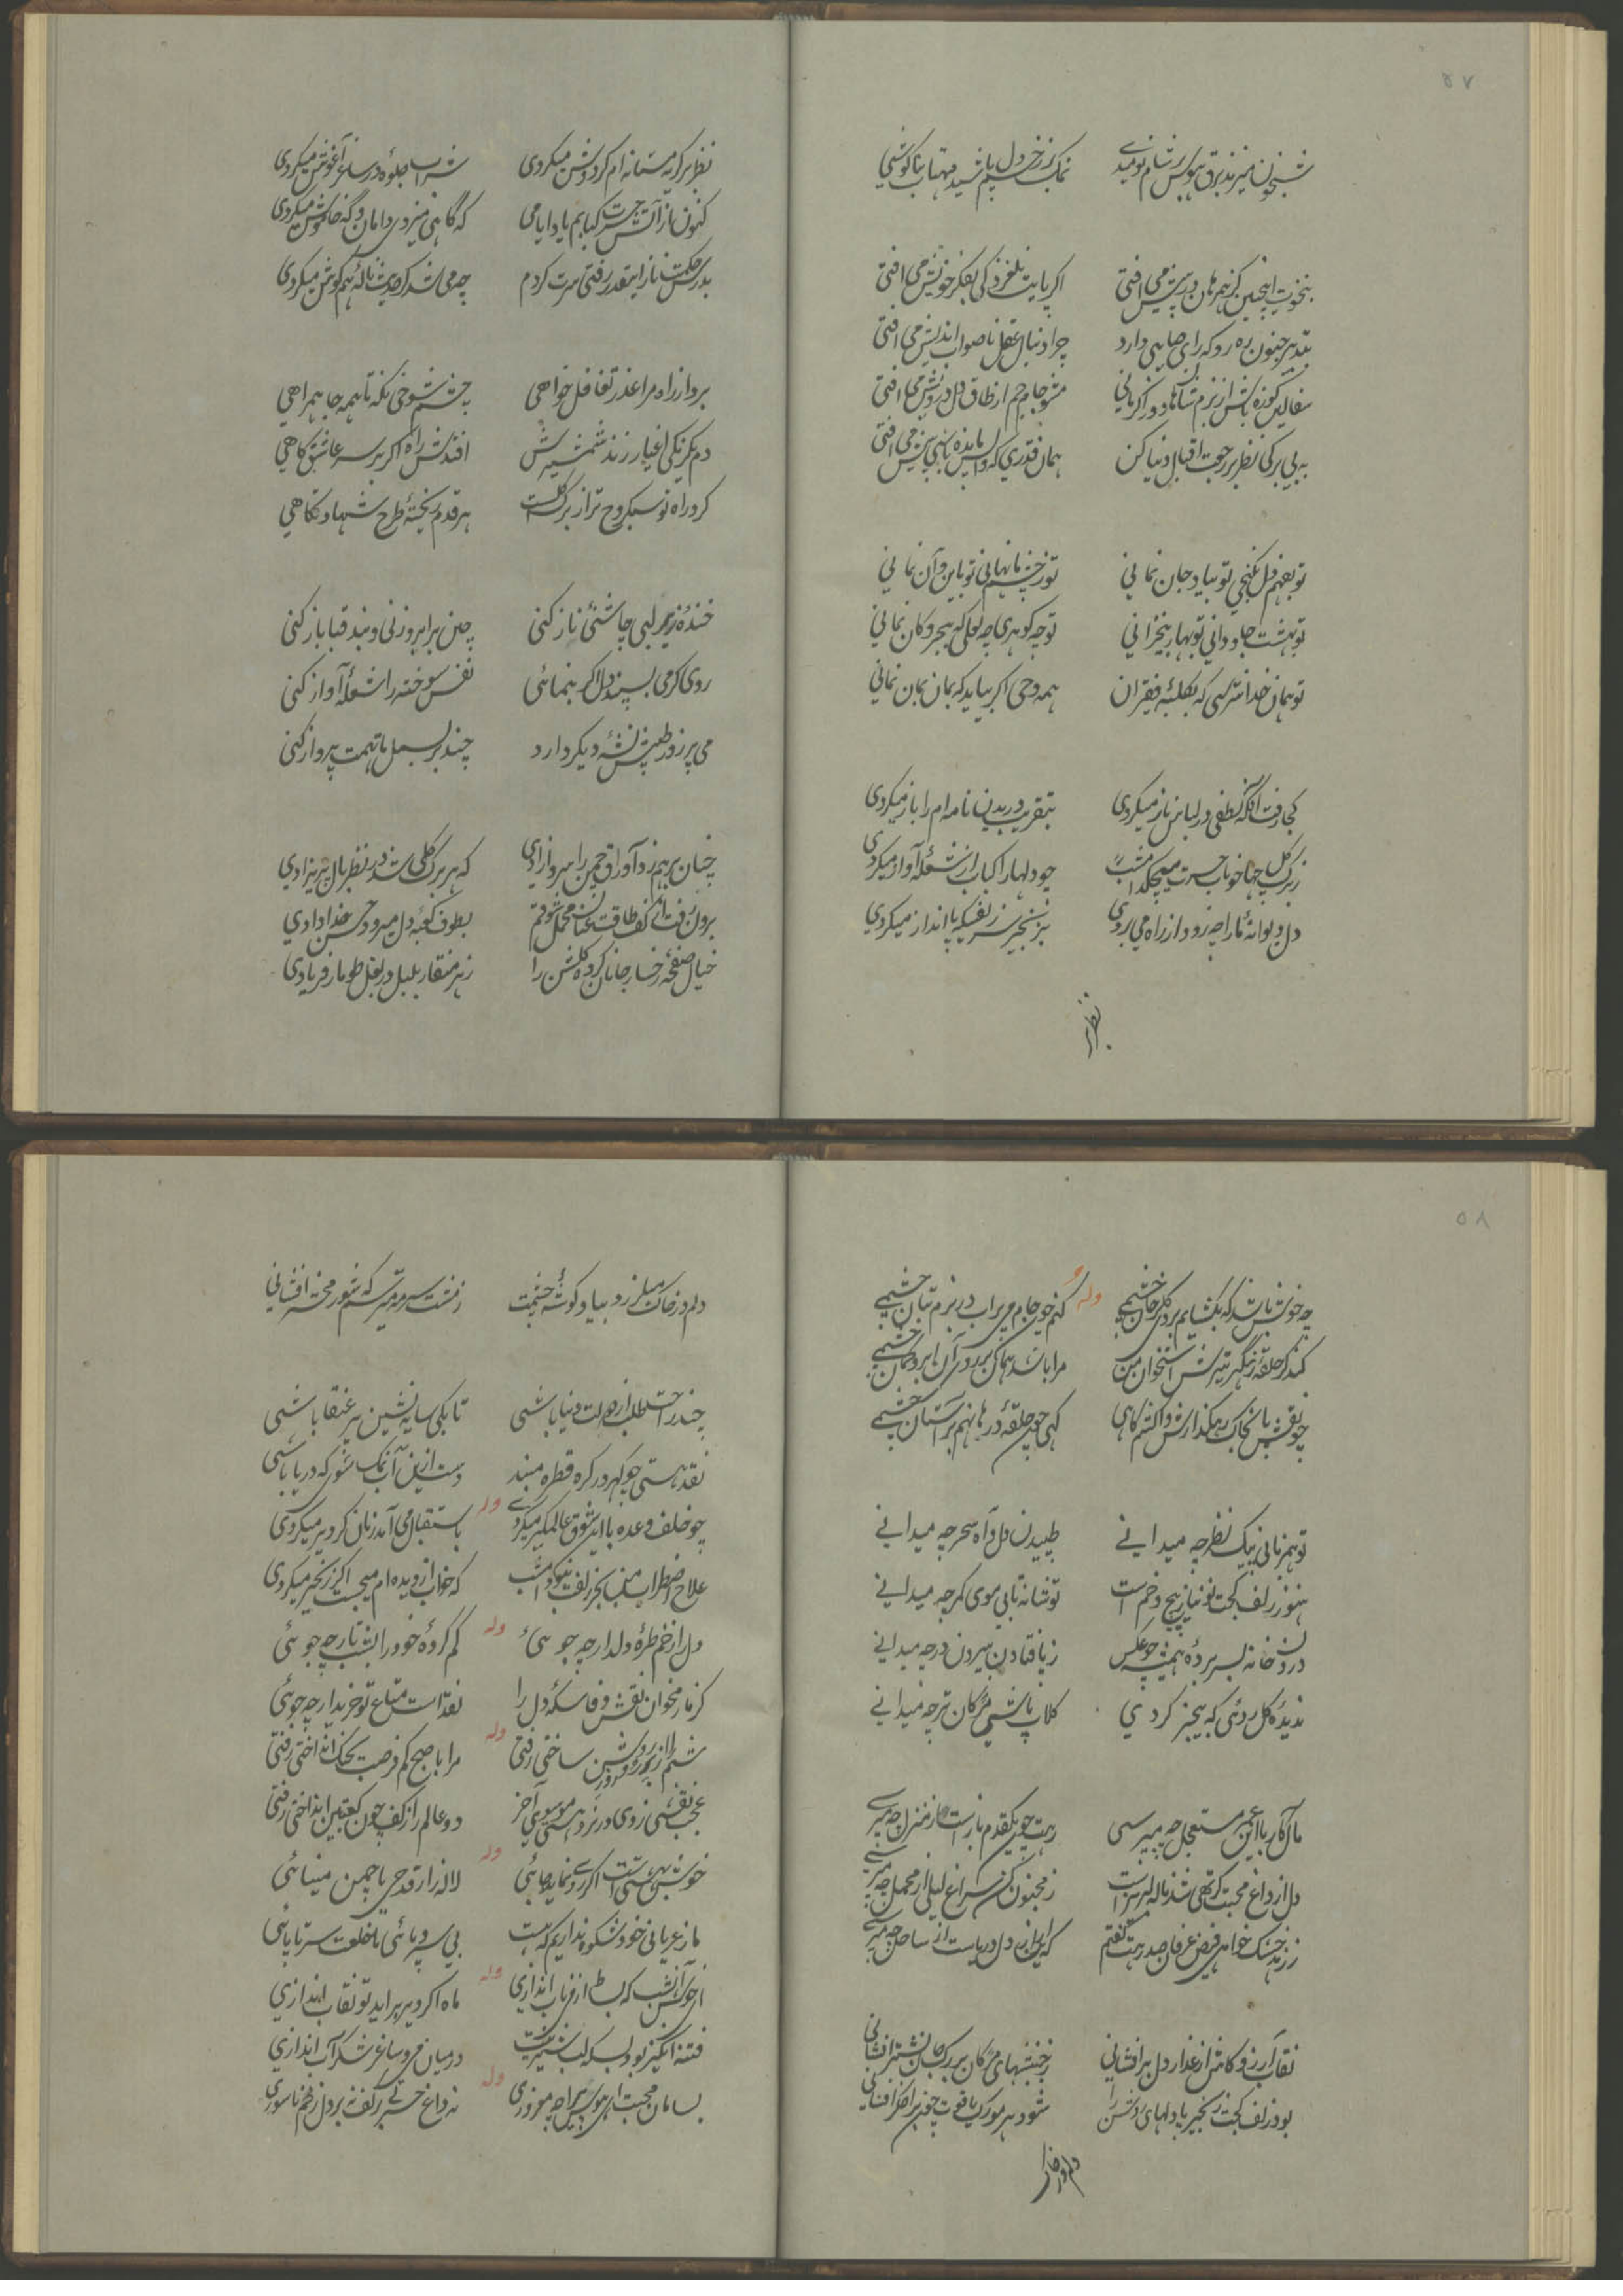 ۵۷
شبخون میزند برق هوس بر شام نومیدی
نمک بر زخم دل پاشید مهتاب بناگوشی
بنخوت اینچنین کز همرهان در پیش می افتی
اگر پایت بلغزد کی بفکر خویش می افتی
بتدبیر جنون ره رو که رای صایبی دارد
چرا دنبال عقل ناصواب اندیش می افتی
سفالین کوزه باش از بزم شاهان دور اگر مانی
مشو جام جم از طاق دل درویش می افتی
به بی برگی نظر بر رجعت اقبال دنیا کن
همان قدری که واپس مانده باشی پیش می افتی
تو بفهم دل نگنجی تو بیاد جان نمانی
تو ز چشم ما نهانی تو باین و آن نمانی
تو بهشت جاودانی تو بهار بیخزانی
تو چه گوهری چه لعلی که ببحر و کان نمانی
تو همان خدا شناسی که بکلبه فقیران
همه وحی اگر بیاید که بمان بمان نمانی
کجا رفت آنکه لطفی در لباس ناز میکردی
بتقریب دریدن نامه ام را باز میکردی
ز برگ گل چها خوناب حسرت میچکد امشب
چو دلها را کباب از شعله آواز میکردی
دل دیوانه ما را چه رو از راه می بردی
بزنجیر سر زلفیکه پا انداز میکردی
نظر بر
نظر بر گریه مستانه ام گر دوش میکردی
شراب جلوه در ساغر آغوش میکردی
کنون از آتش حسرت کبابم یاد ایامی
که گاهی میزدی دامان و گه خاموش میکردی
بدرس حکمت ناز اینقدر رفتی سرت گردم
چه می شد گر حدیث ناله هم گوش میکردی
برو از راه مرا عذر تغافل خواهی
چشم شوخی نگه تا همه جا همراهی
دم یکرنگی اغیار زند شمشیرش
افتدش راه اگر بر سر عاشق گاهی
گرد راه تو سبکروح تر از برگ گلست
هر قدم ریخته طرح شهادتگاهی
خنده زیر لبی چاشنی ناز کنی
چین بر ابرو زنی و بند قبا باز کنی
روی گرمی بسپند دل اگر بنمائی
نفس سوخته را شعله آواز کنی
می پر زور طپش نشه دیگر دارد
چند بر بسمل ما تهمت پرواز کنی
چنان بر هم زد اوراق چمن را سرو آزادی
که هر برگ گلی شد در نظر بال پریزادی
برون رفت از کف طاقت عنان محمل شوقم
بطوف کعبه دل میرود حسن خدادادی
خیال صفحه رخسار جانان کرده گلشن را
ز هر منقار بلبل در بغل طومار فریادی
۵۸
چه خوش باشد که بگشایم بروی گلرخان چشمی
وله
کنم چون جام می پر آب در بزم بتان چشمی
کند گر حلقه زهگیر تیرش استخوان من
مرا باشد همان بر روی آن ابرو کمان چشمی
چو نقش پا بخاک رهگذارش واکنم گاهی
گهی چون حلقه در ها نهم بر آستان چشمی
تو همزبانی پیک نظر چه میدانی
طپیدن دل و آه سحر چه میدانی
هنوز زلف کجت تو نیاز پیچ و خم است
تو شانه تابی موی کمر چه میدانی
درون خانه بسر برده همیشه چو عکس
ز پا فتادن بیرون در چه میدانی
ندیده گل روئی که بیخبر کردی
گلاب پاشی مژگان تر چه میدانی
مآل کار با این عمر مستعجل چه میپرسی
رهت چون یکقدم باز است از منزل چه میپرسی
دل از داغ محبت گر تهی شد ناله لبریز است
ز مجنون کن سراغ لیلی از محمل چه میپرسی
ز زهد خشک خواهی فیض عرفان صد رهت گفتم
که این راز دل دریاست از ساحل چه میپرسی
نقاب آرزو کاش از عذار دل برافشانی
ز جنبشهای مژگان بر رگ جان نشتر افشانی
بود زلف کجت زنجیر با دلهای روشن را
شود هر مو رگ یاقوت چون بر اخگر افشانی
دلم در خاک
دلم در خاک میلرزد بیاد گوشه چشمت
ز مشت سرمه میترسم که شور محشر افشانی
چند راحت طلب از دولت دنیا باشی
تا بکی سایه نشین پر عنقا باشی
نقد هستی چو گهر در گره قطره مبند
دست ازین آب نمک شور که دریا باشی
چو خلف وعده با این شوق عالمگیر میکردی
وله
باستقبال می آمد زمان گر دیر میکردی
علاج اضطراب من بجز زلفت نبود امشب
که خواب از دیده ام میجست اگر زنجیر میکردی
دل را ز خم طره دلدار چه جوئی
وله
گم کرده خود را بشب تار چه جوئی
گر مار مخوان نقش وفا سکه دل را
نقد است متاع تو خریدار چه جوئی
شبم را از پرتو رو روز روشن ساختی رفتی
وله
مرا با صبح کم فرصت بچنگ انداختی رفتی
عجب نقشی زدی در نرد هستی موسوی آخر
دو عالم را ز کف چون کعبتین انداختی رفتی
خوش بهشتی است اگر روی نماید جائی
وله
لاله زار قدحی با چمن مینائی
ما ز عریانی خود شکوه نداریم که هست
بی سر و پائی ما خلعت سر تا پائی
ای خوش آنشب که بساط از می ناب اندازی
وله
ماه اگر دیر براید تو نقاب اندازی
فتنه انگیز بود بسکه لب شیرینت
در میان می و ساغر شکرآب اندازی
بسامان محبت ای هوس پیرا چه مغروری
وله
نه داغ حسرتی بر کف نه بر دل زخم ناسوری